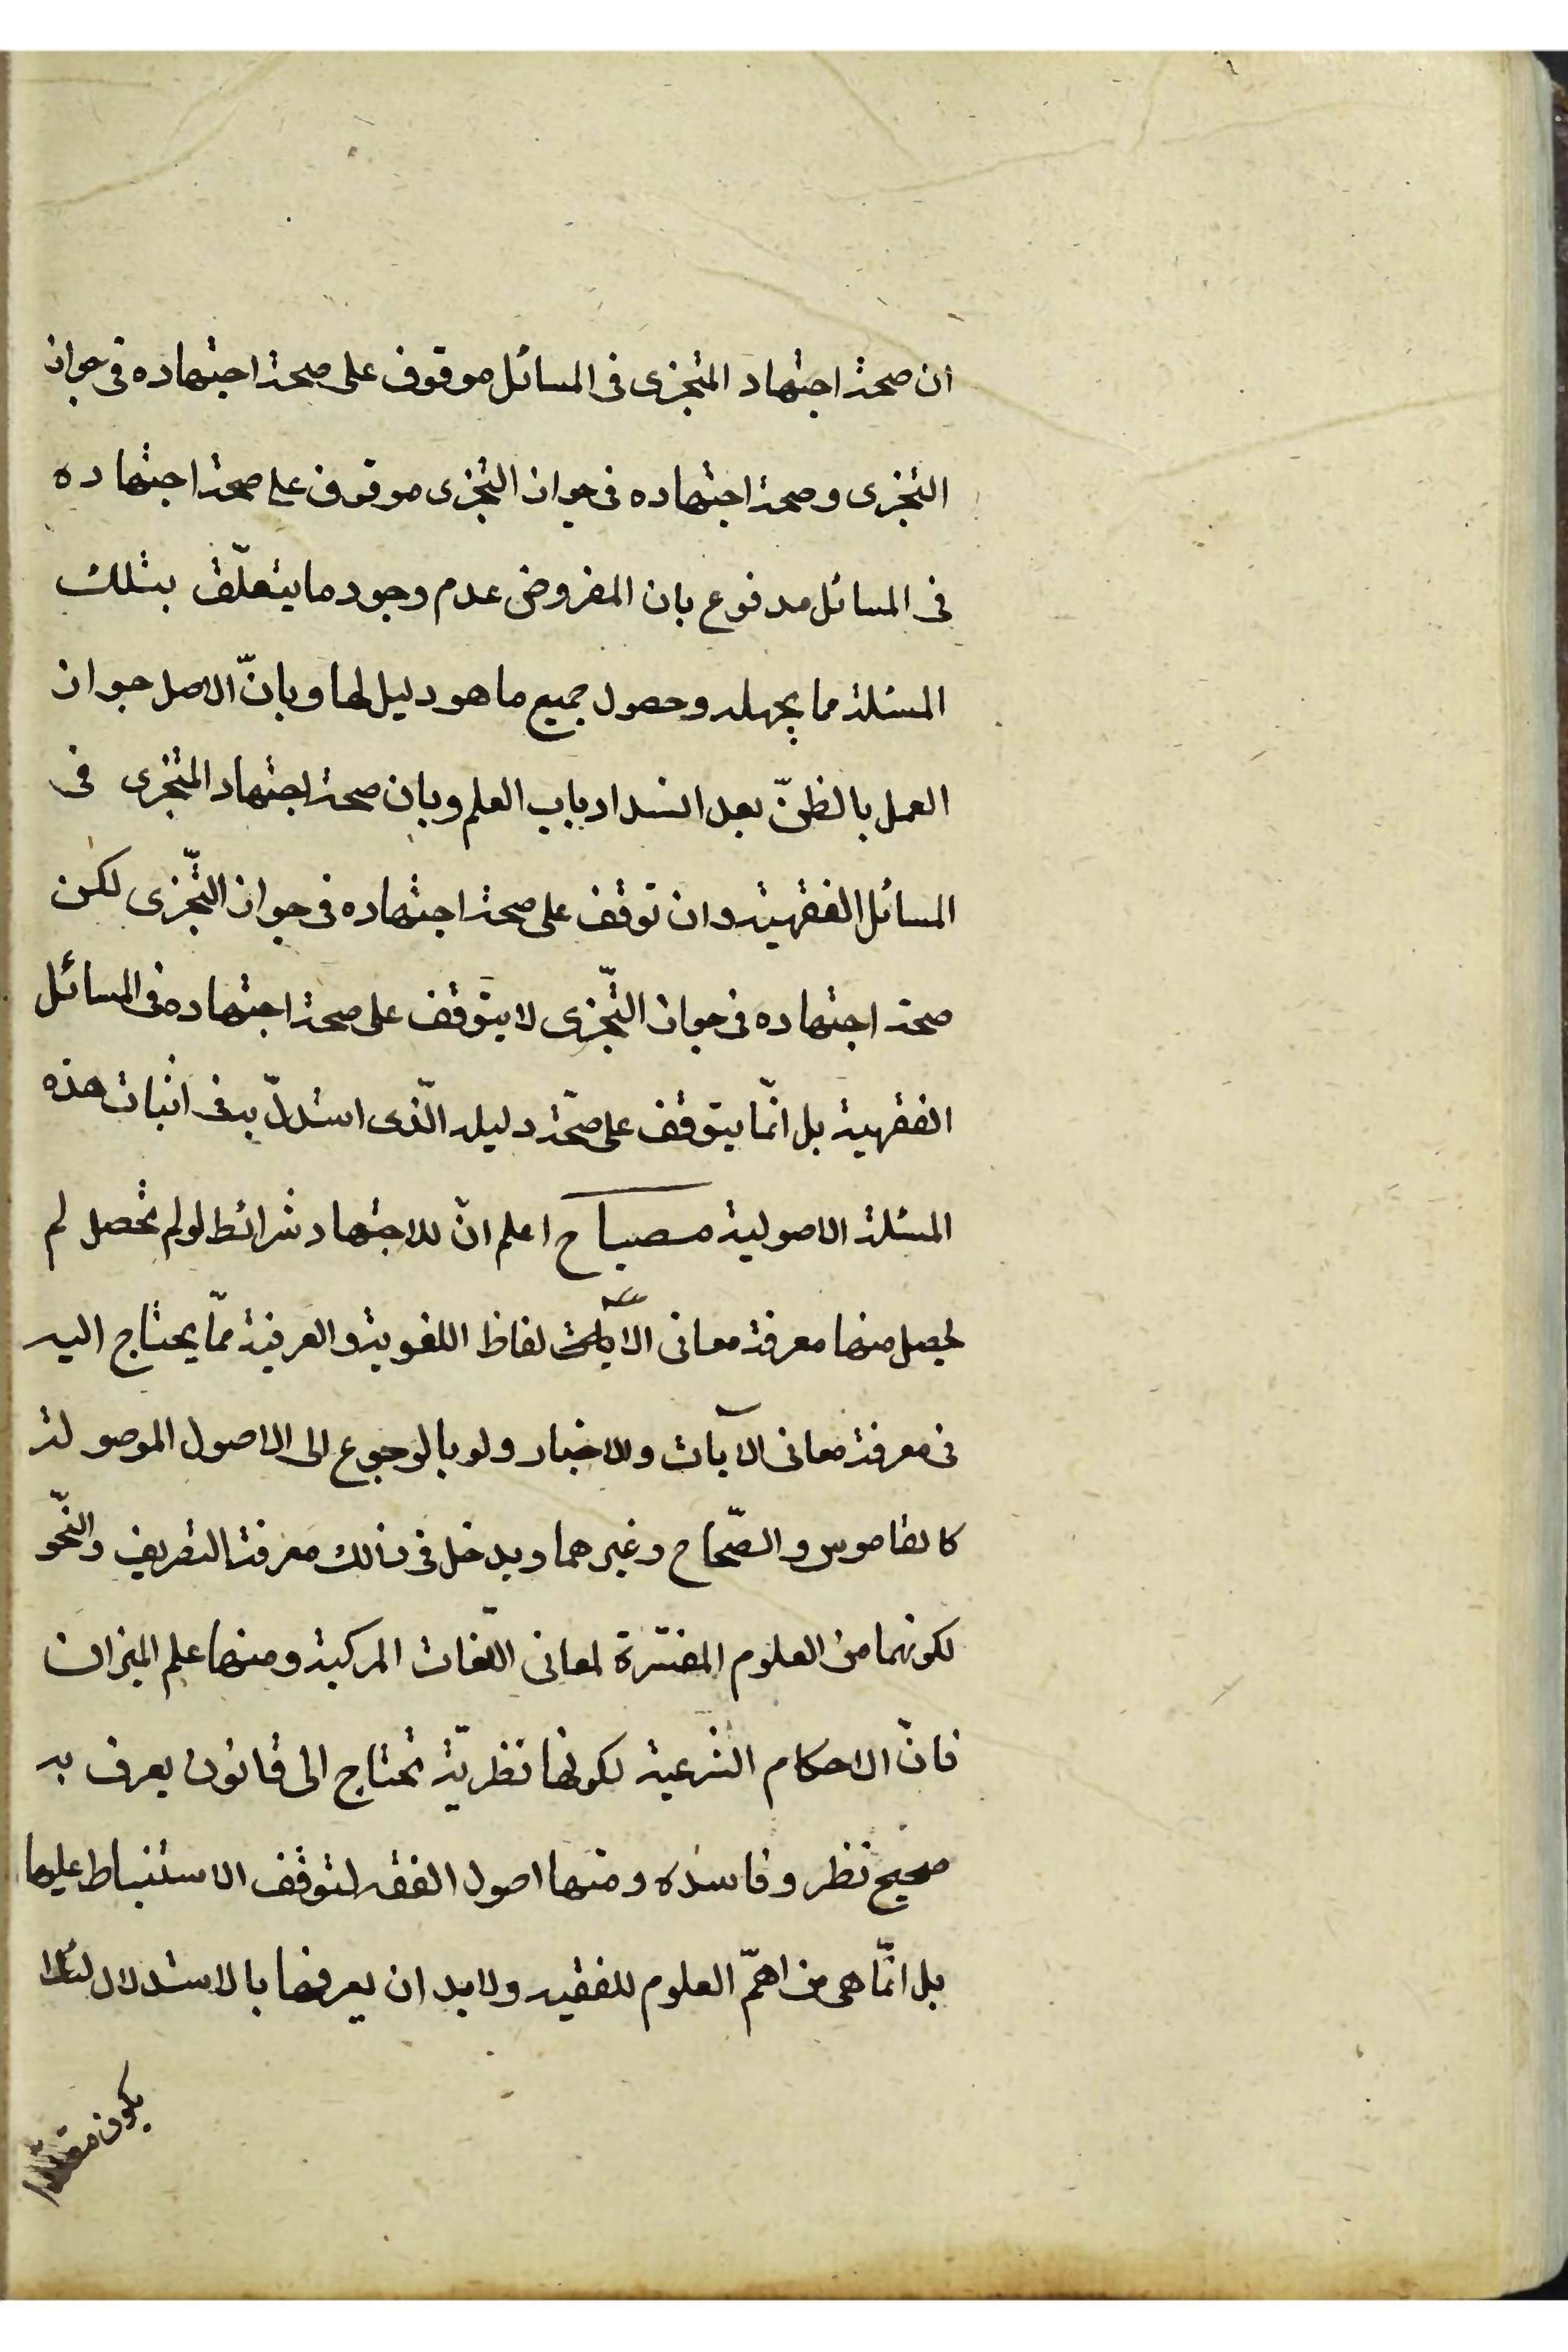 ان صحة اجتهاد المتجزى فى المسائل موقوف على صحة اجتهاده فى جواز
التجزى و صحة اجتهاده فى جواز التجزى موقوف على صحة اجتهاده
فى المسائل مدفوع بان المفروض عدم وجود ما يتعلّق بتلك
المسئلة مما يجهله و حصول جميع ما هو دليل لها و بانّ الاصل جواز
العمل بالظنّ بعد انسداد باب العلم و بان صحة اجتهاد المتجزى فى
المسائل الفقهية و ان توقف على صحة اجتهاده فى جواز التّجزى لكن
صحة اجتهاده فى جواز التّجزى لا يتوقف على صحة اجتهاده فى المسائل
الفقهية بل انّما يتوقف على صحّة دليله الّذى استدلّ به فى اثبات هذه
المسئلة الاصولية مصباح اعلم انّ للاجتهاد شرائط لو لم تحصل لم
يحصل منها معرفة معانى الالفاظ اللغوية و العرفية ممّا يحتاج اليه
فى معرفة معانى الآيات و الاخبار و لو بالرجوع الى الاصول الموصولة
كالقاموس و الصّحاح و غيرهما و يدخل فى ذالك معرفة التصريف و النّحو
لكونهما من العلوم المفسّرة لمعانى اللّغات المركبة و منها علم الميزان
فانّ الاحكام الشرعية لكونها نظريّة تحتاج الى قانون يعرف به
صحيح نظر و فاسده و منها اصول الفقه لتوقف الاستنباط عليها
بل انّما هى من اهمّ العلوم للفقيه و لا بد ان يعرفها بالاستدلال لئلا
يكون مقلدا